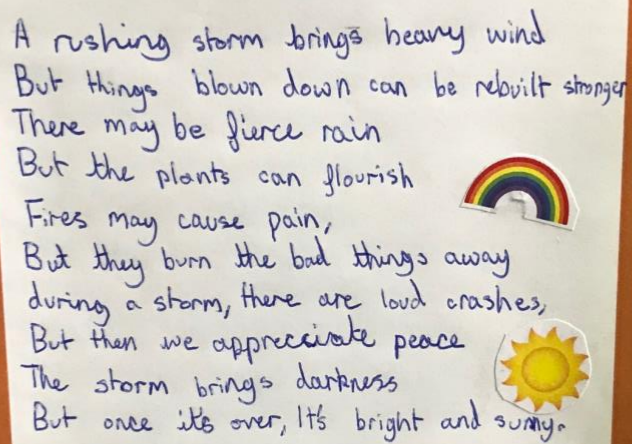 A rushing storm brings heavy wind
But things blown down can be rebuilt stronger
There may be fierce rain
But the plants can flourish
Fires may cause pain,
But they burn the bad things away
during a storm, there are loud crashes,
But then we apprecciate peace
The storm brings darkness
But once it's over, It's bright and sunny.